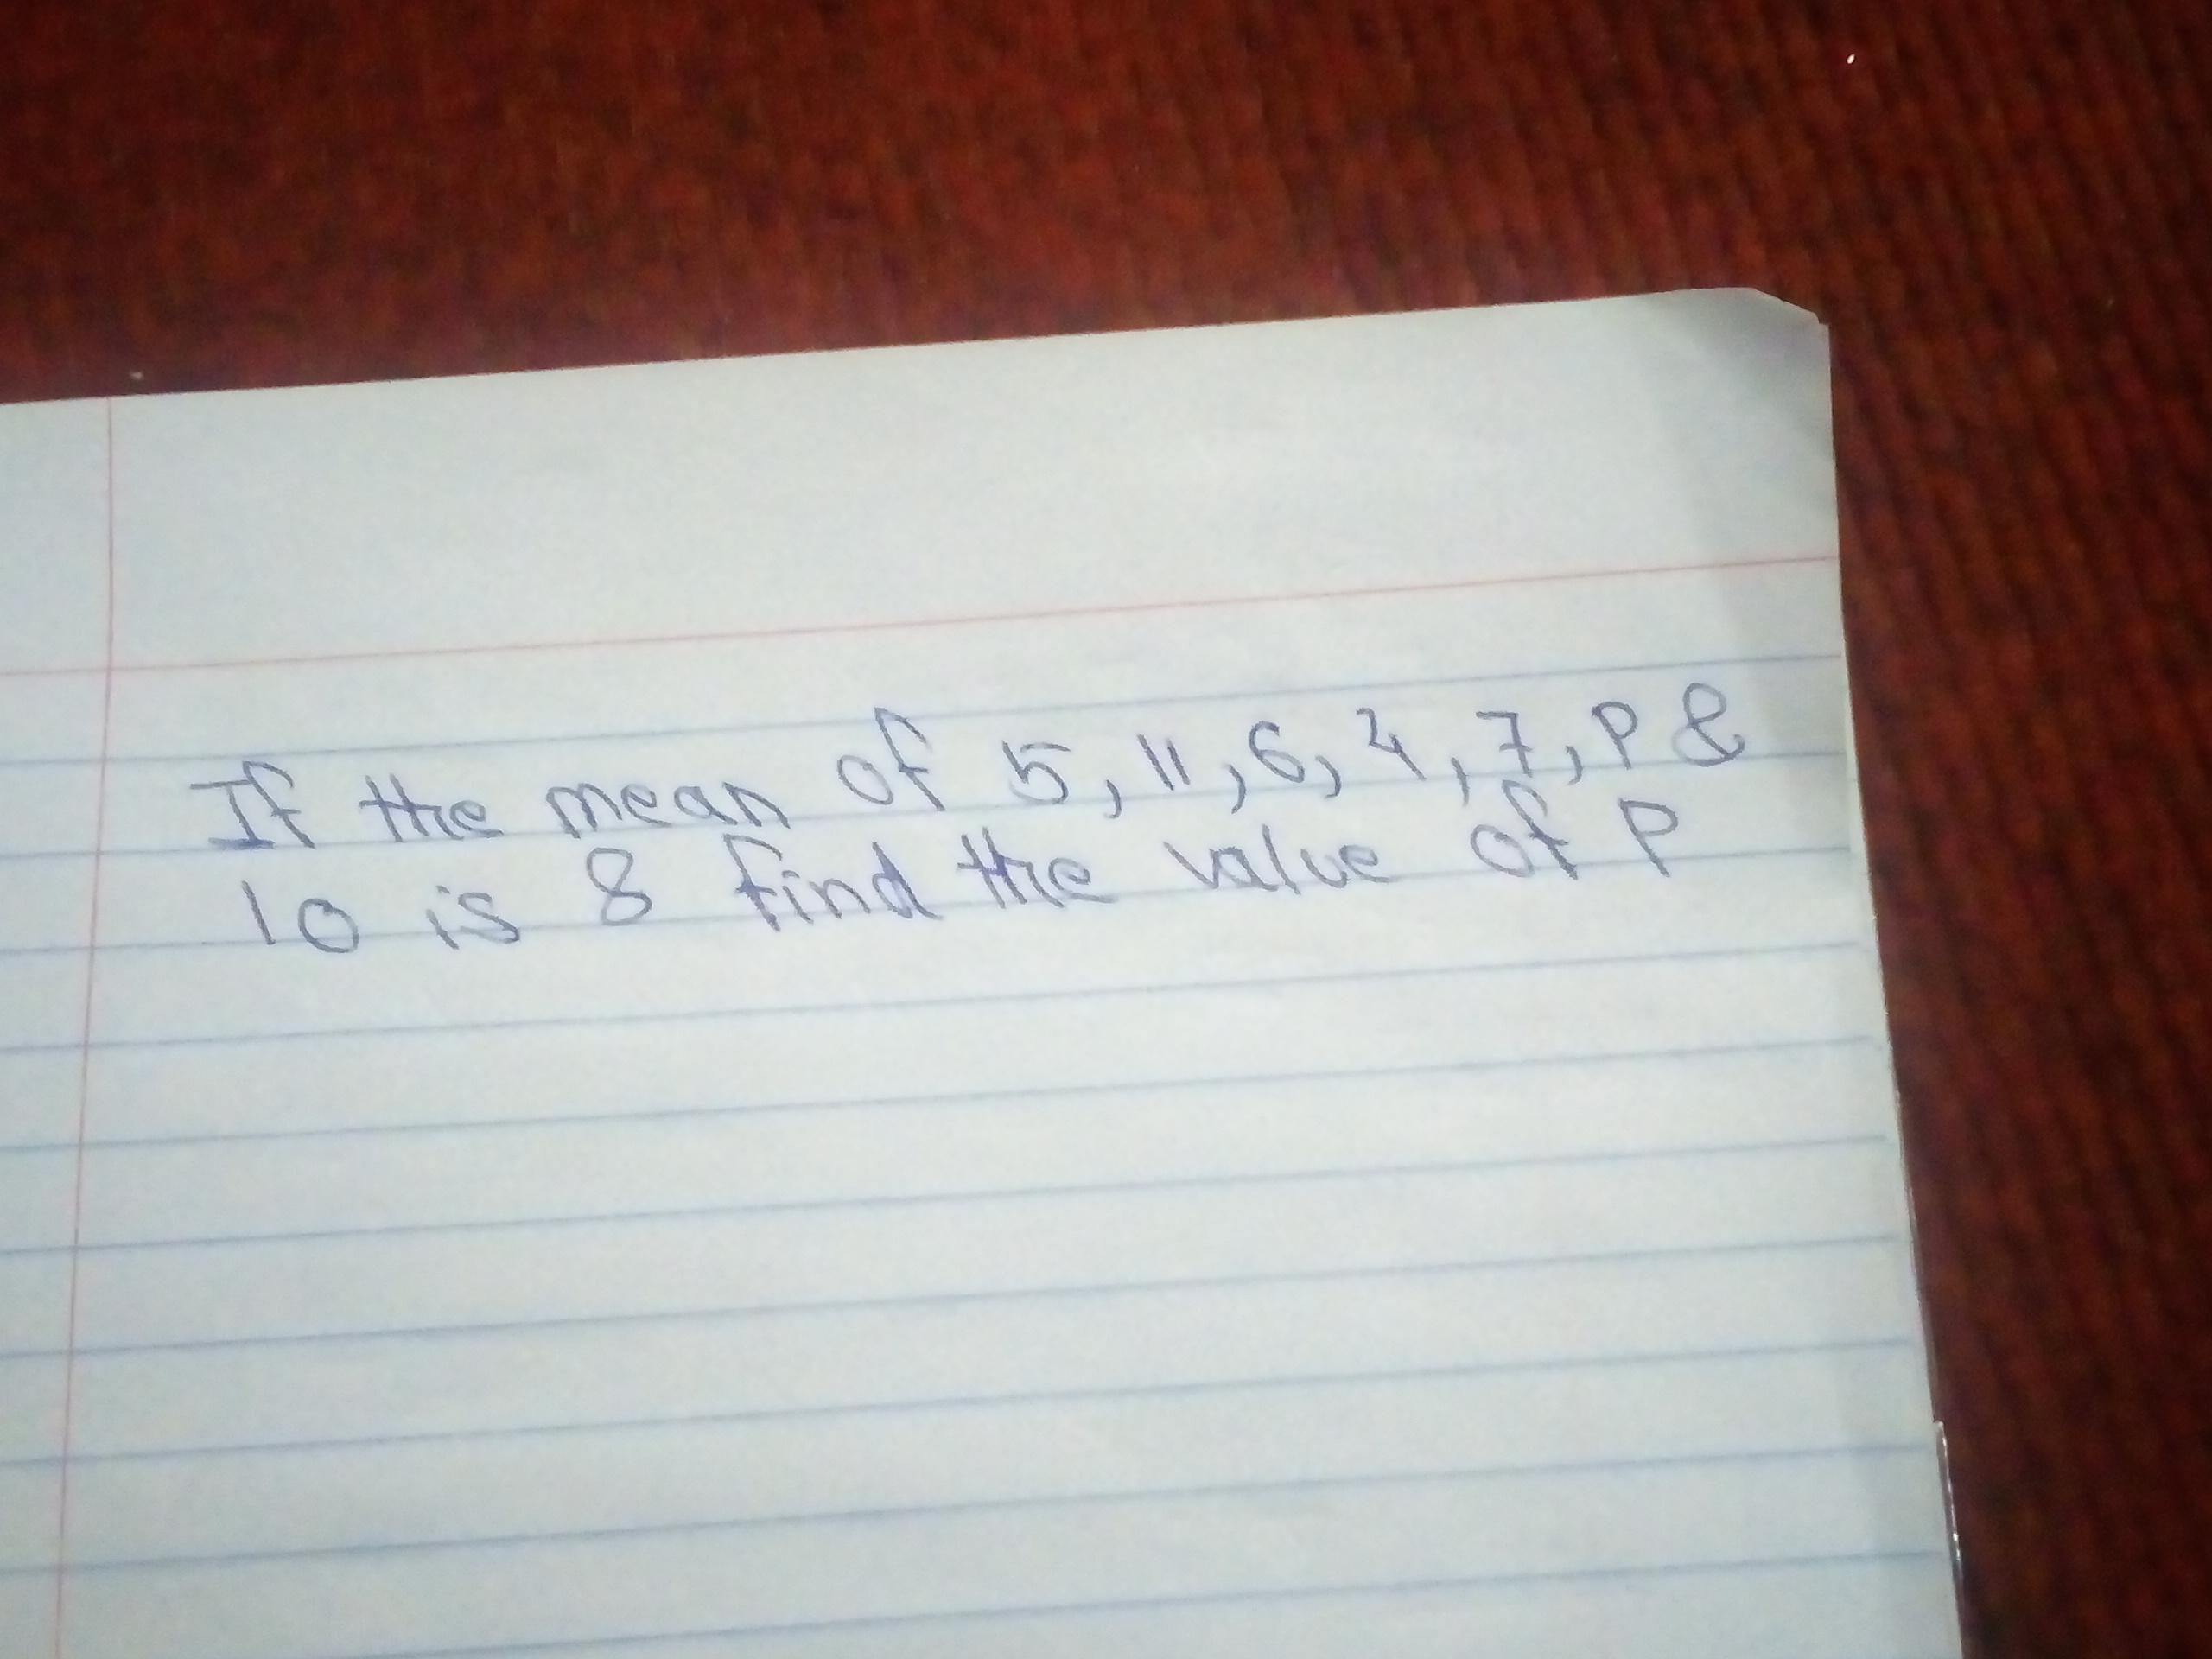 If the mean of 5, 11, 6, 4, 7, P &
10 is 8 find the value of P